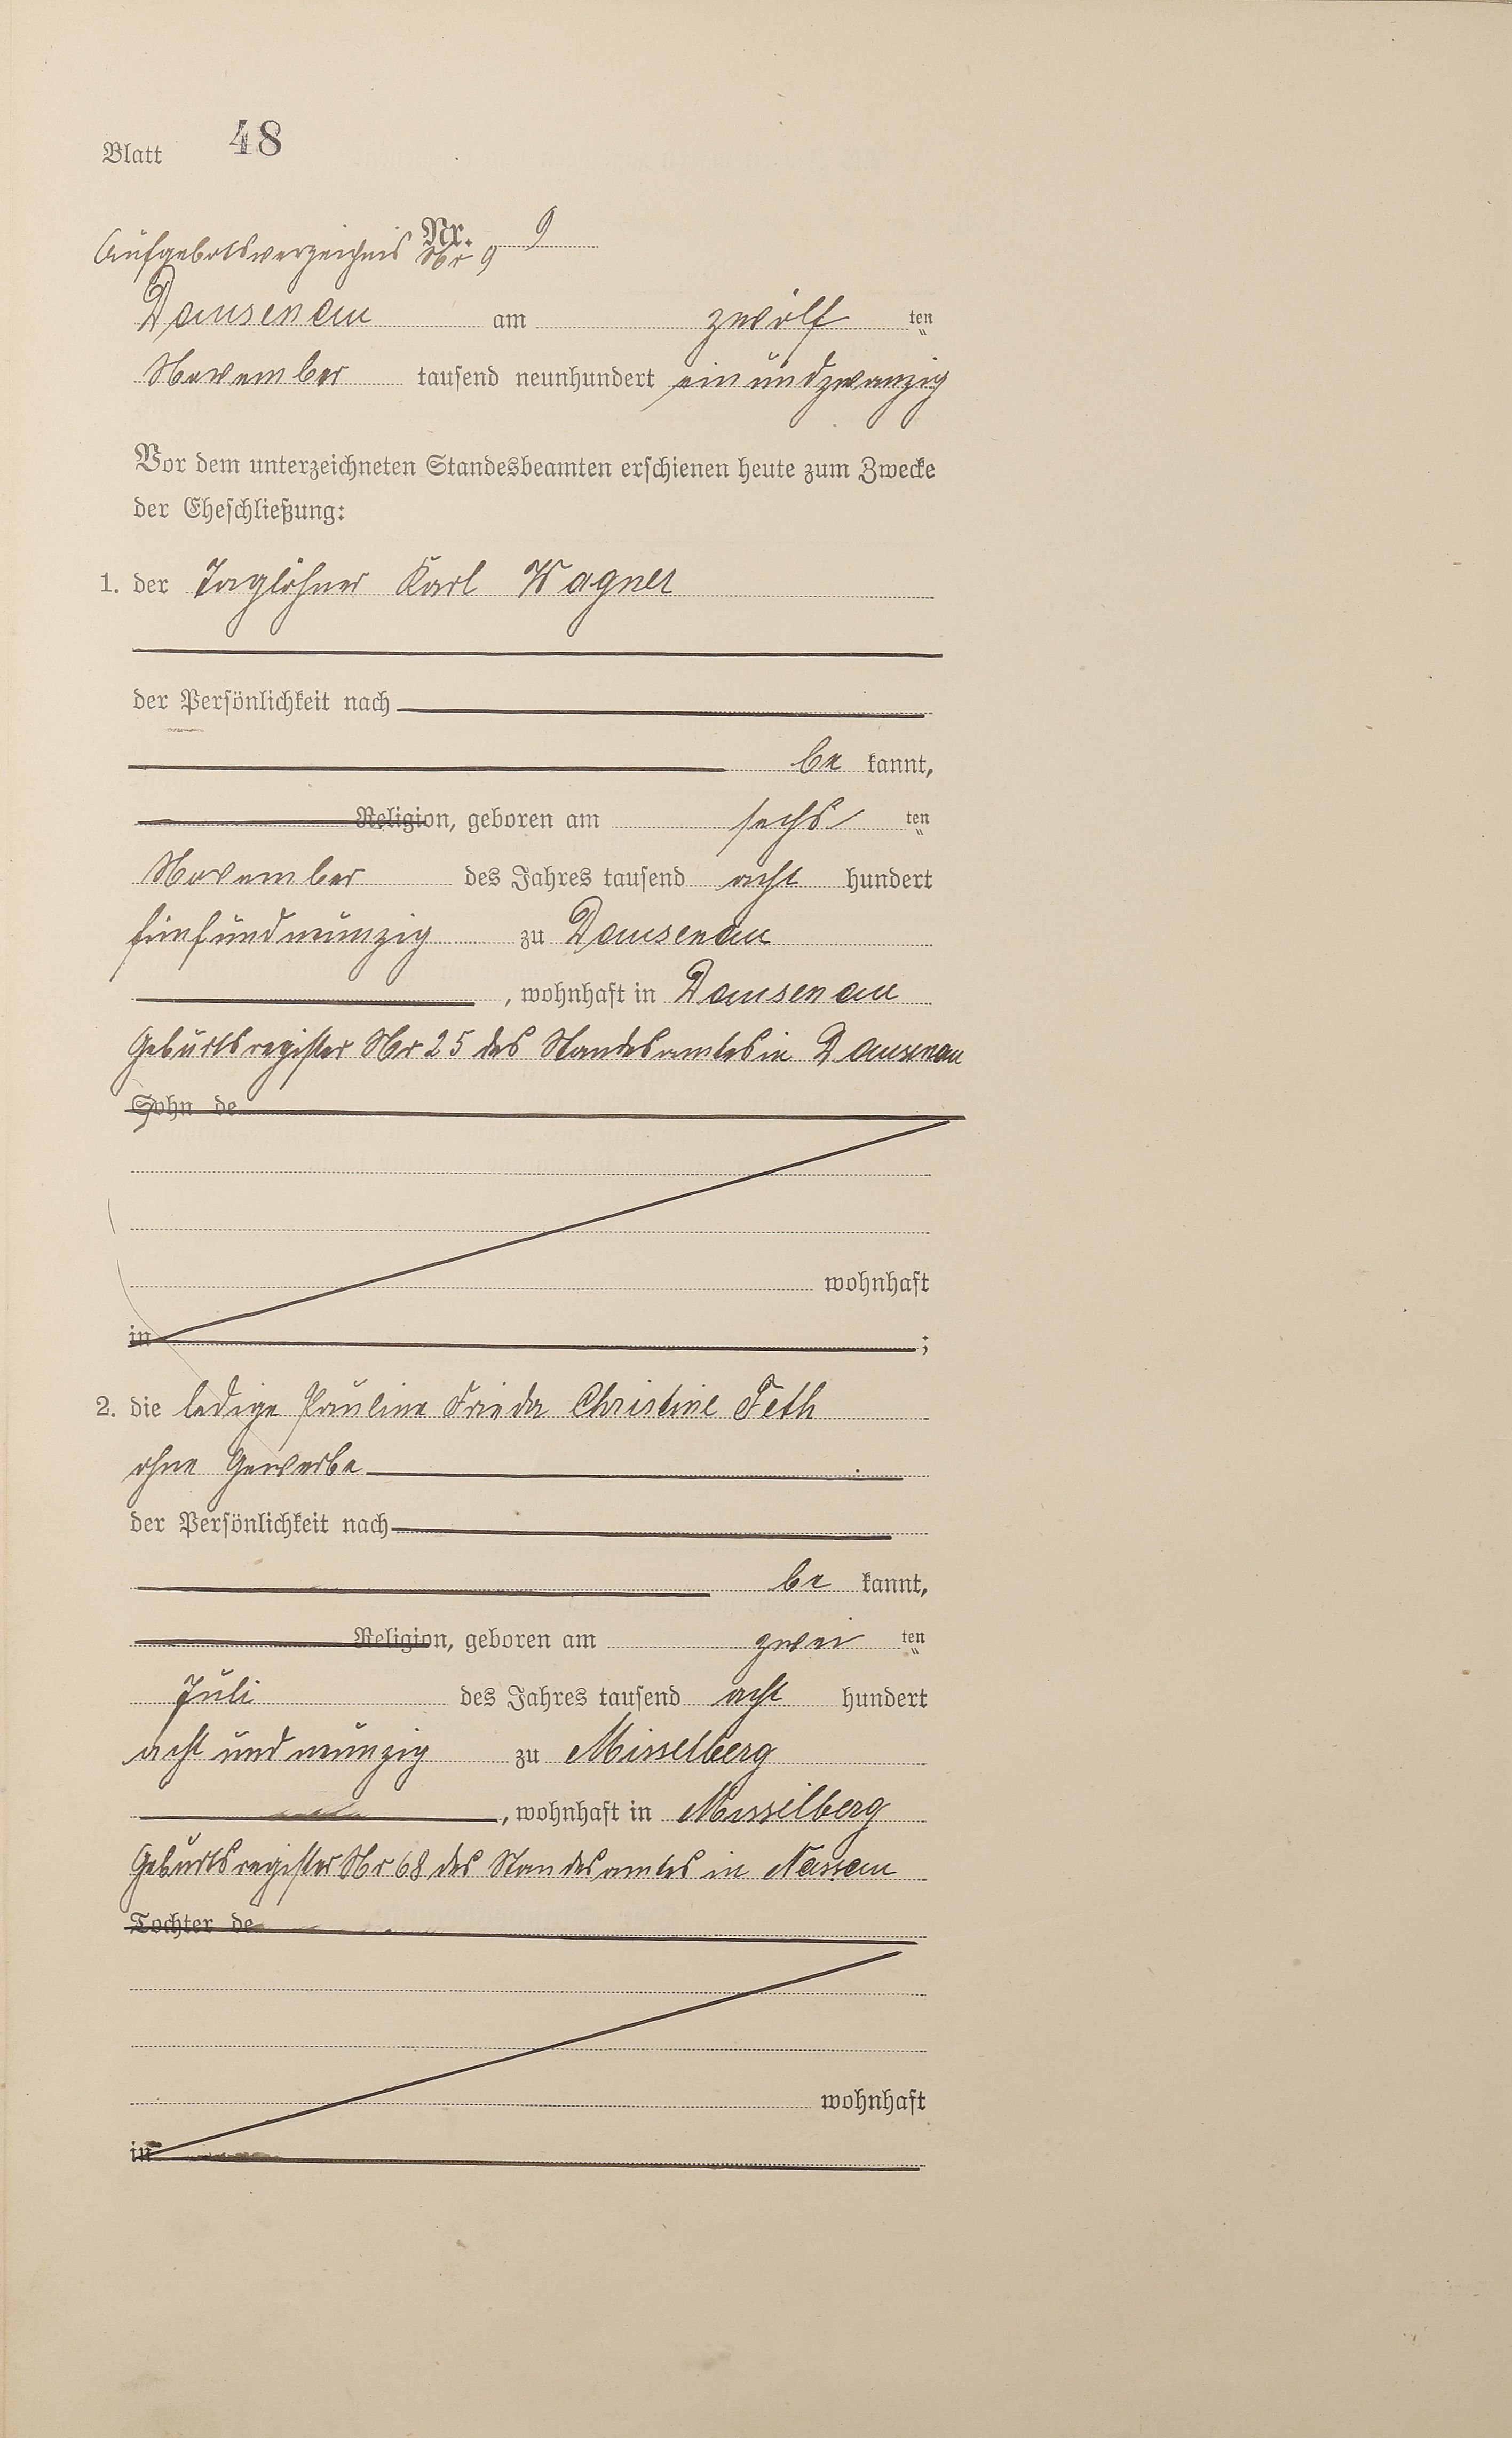 Blatt 48
Nr. 9
Aufgebotsverzeichnis Nr 9
Dausenau am zwölf ten
November tausend neunhundert einundzwanzig
Vor dem unterzeichneten Standesbeamten erschienen heute zum Zwecke
der Eheschließung:
1. der Taglöhner Karl Wagner
der Persönlichkeit nach
be kannt,
Religion, geboren am sechs ten
November des Jahres tausend acht hundert
fünfundneunzig zu Dausenau
, wohnhaft in Dausenau
Geburtsregister Nr 25 des Standesamtes in Dausenau
Sohn de
wohnhaft
in ;
2. die ledige Pauline Frieda Christine Feth
ohne Gewerbe
der Persönlichkeit nach
be kannt,
Religion, geboren am zwei ten
Juli des Jahres tausend acht hundert
acht und neunzig zu Misselberg
, wohnhaft in Misselberg
Geburtsregister Nr 68 des Standesamtes in Nassau
Tochter de
wohnhaft
in